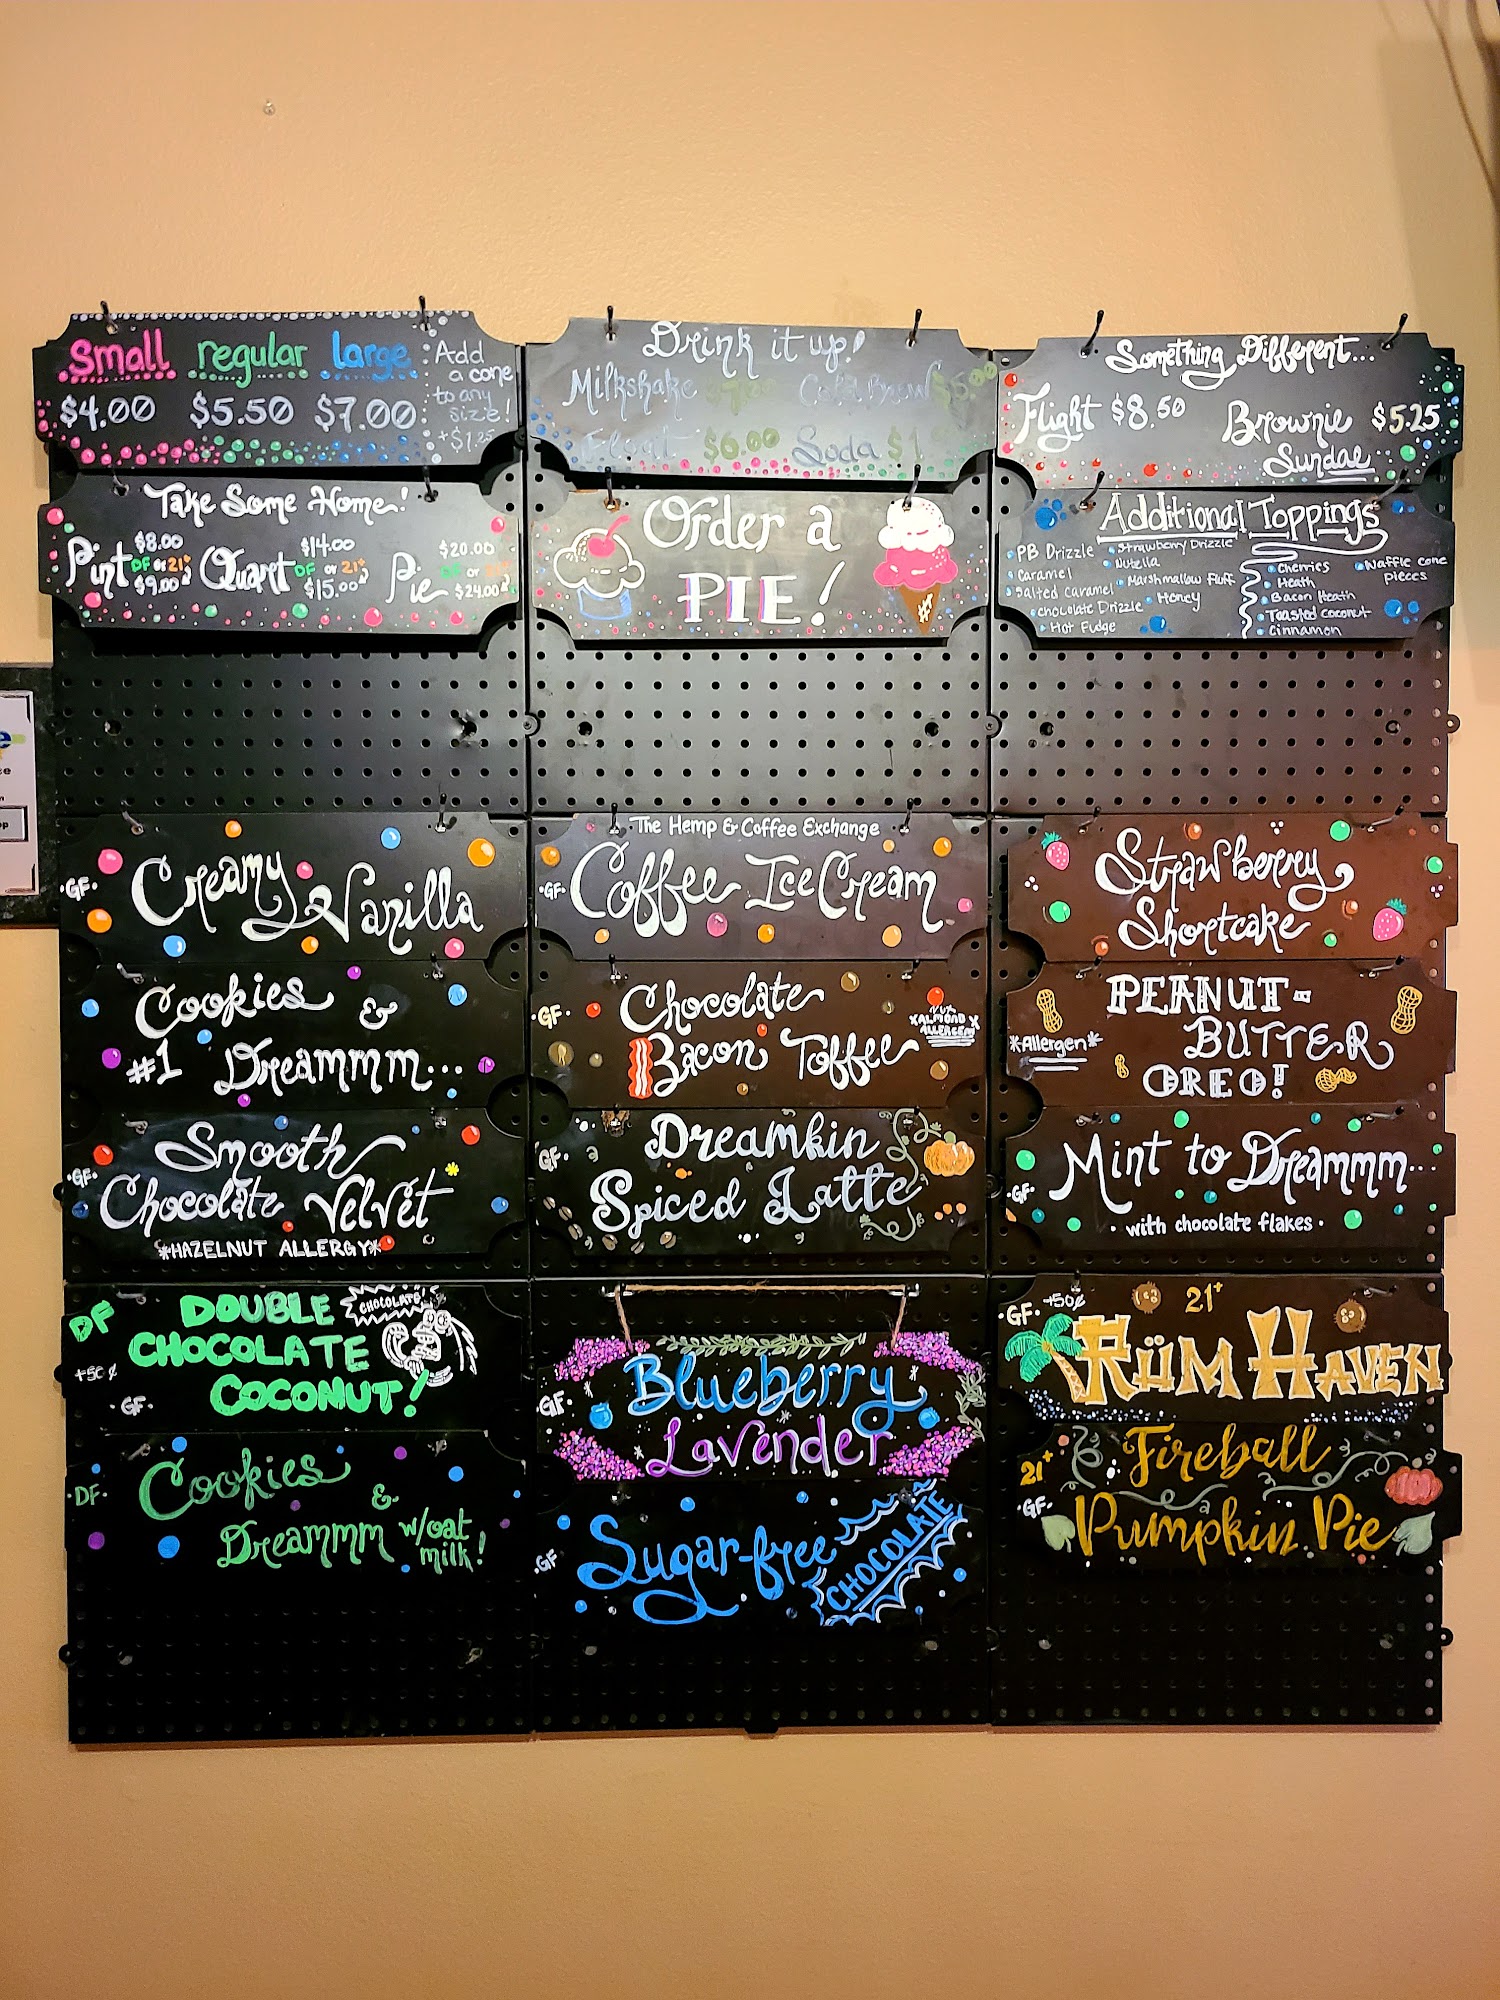 Small regular large
$4.00 $5.50 $7.00
Add
a cone
to any
size!
+$1.25
Drink it up!
Milkshake Cold Brew
Float $6.00 Soda $1
Something Different...
Flight $8.50
Brownie $5.25
Sundae
Take Some Home!
Pint $8.00 DF or 21+ $9.00
Quart $14.00 DF or 21+ $15.00
Pie $20.00 or 21+ $24.00
Order a
PIE!
Additional Toppings
PB Drizzle
Caramel
Salted Caramel
Chocolate Drizzle
Hot Fudge
Strawberry Drizzle
Nutella
Marshmallow Fluff
Honey
Cherries
Heath
Bacon Heath
Toasted Coconut
Cinnamon
Waffle cone
pieces
·GF·
Creamy
Vanilla
The Hemp & Coffee Exchange
·GF· Coffee Ice Cream
Strawberry
Shortcake
Cookies &
#1 Dreammm...
·GF· Chocolate
Bacon Toffee
ALMOND
ALLERGEN
PEANUT-
*Allergen* BUTTER
OREO!
Smooth
·GF· Chocolate Velvet
*HAZELNUT ALLERGY*
Dreamkin
·GF· Spiced Latte
Mint to Dreammm...
·GF·
· with chocolate flakes ·
DF DOUBLE
CHOCOLATE!
CHOCOLATE
+50¢
·GF· COCONUT!
Blueberry
·GF· Lavender
·GF· +50¢ 21+
RÜM HAVEN
·DF· Cookies
&
Dreammm w/oat
milk!
·GF· Sugar-free
CHOCOLATE
Fireball
21+
·GF· Pumpkin Pie